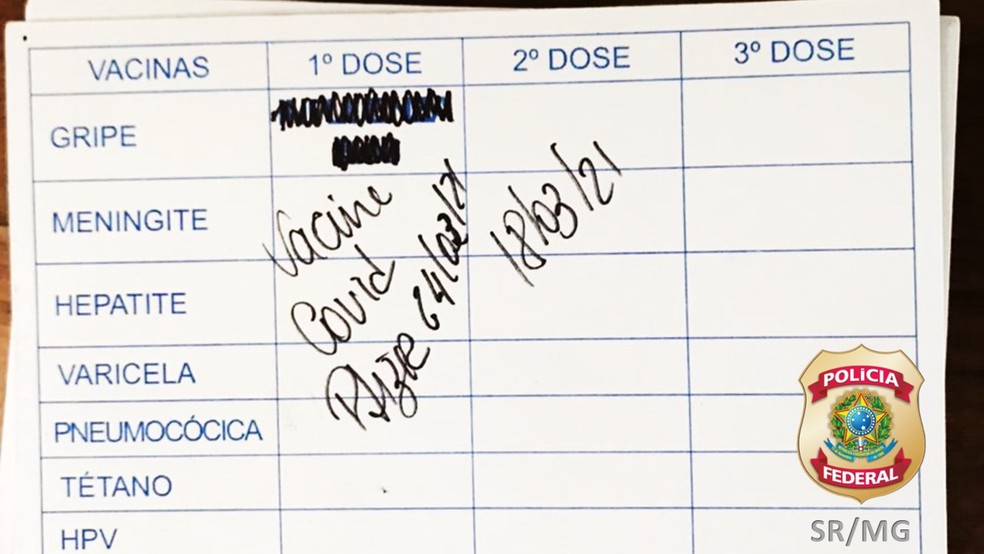 VACINAS 1º DOSE 2º DOSE 3º DOSE
GRIPE
MENINGITE
Vacine
Covid
18/03/21
HEPATITE
VARICELA
PNEUMOCÓCICA
TÉTANO
HPV
POLÍCIA
FEDERAL
SR/MG